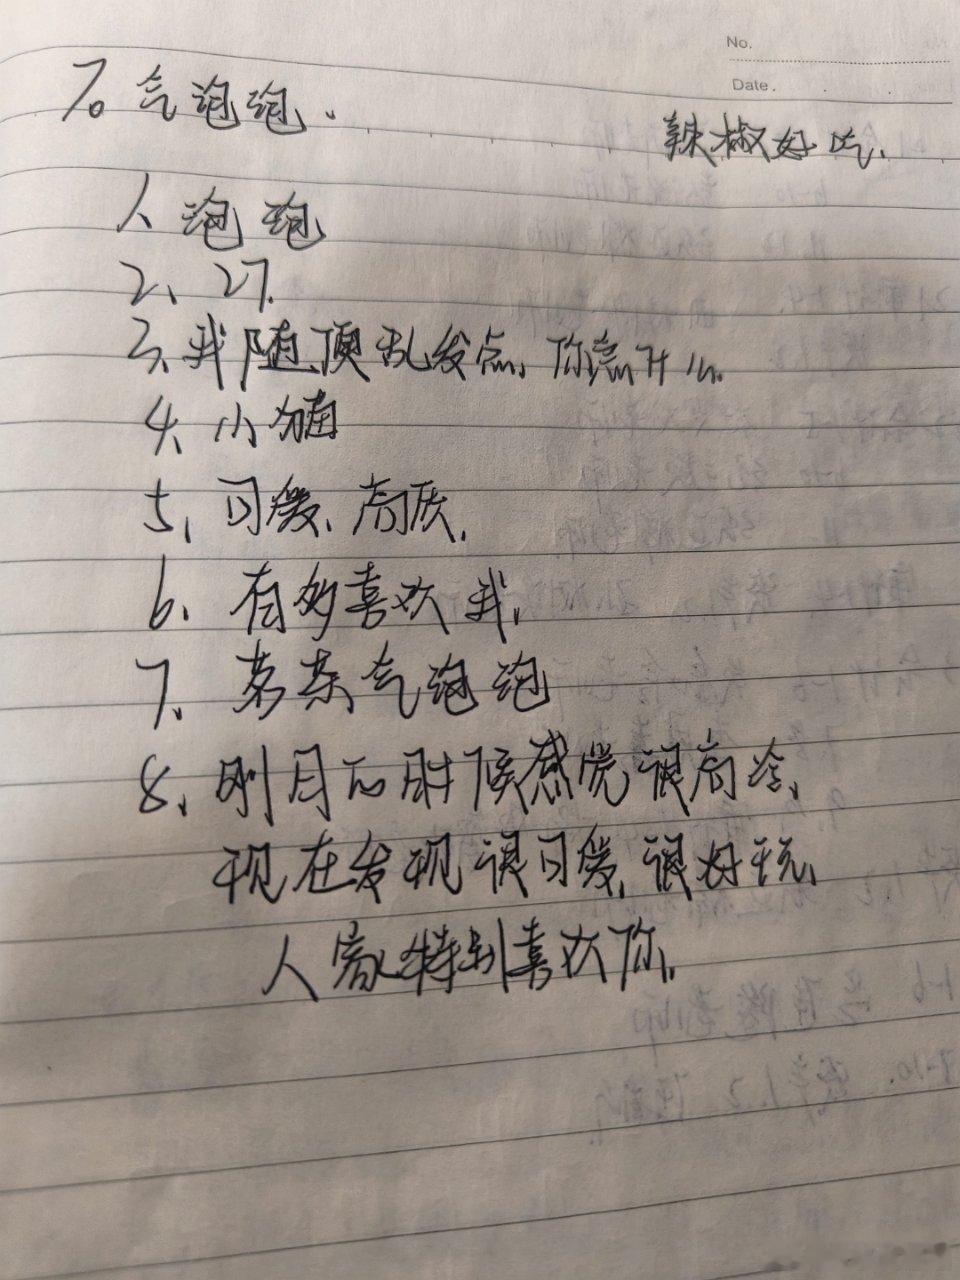 No.
Date.
7。气泡泡.
辣椒好吃.
1、泡泡
2、27.
3、我随便乱发点,你急什么.
4、小猫
5、可爱、高质.
6、有多喜欢我.
7、茗茶气泡泡
8、刚开的时候感觉很高冷,
现在发现很可爱,很好玩,
人家特别喜欢你.